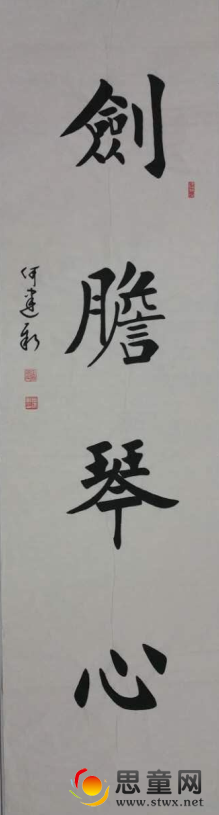 劍膽琴心
何建新
思童网
www.stwx.net